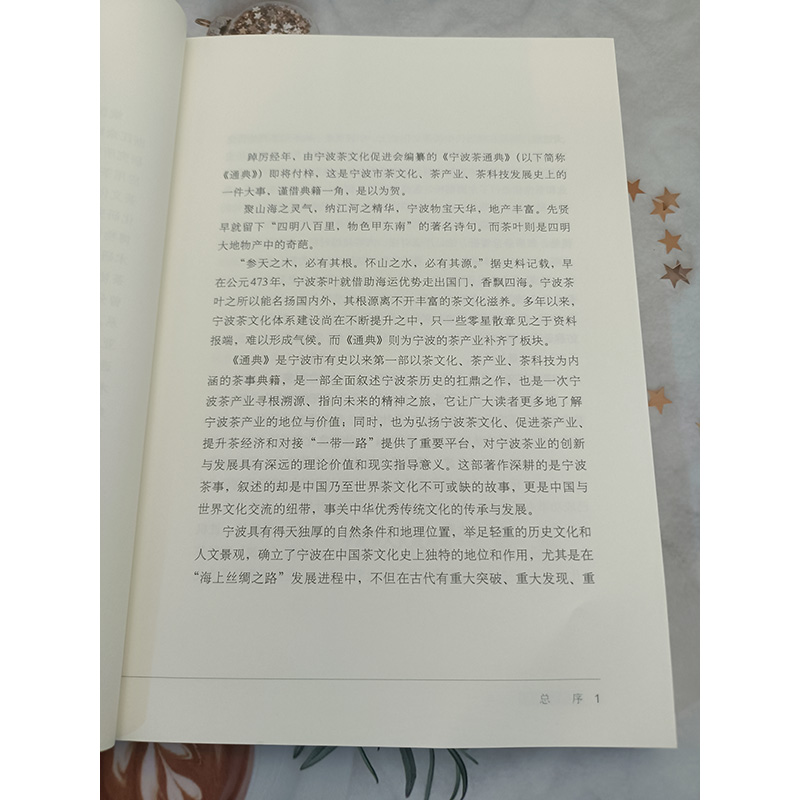 踔厉经年，由宁波茶文化促进会编纂的《宁波茶通典》（以下简称
《通典》）即将付梓，这是宁波市茶文化、茶产业、茶科技发展史上的
一件大事，谨借典籍一角，是以为贺。
聚山海之灵气，纳江河之精华，宁波物宝天华，地产丰富。先贤
早就留下“四明八百里，物色甲东南”的著名诗句。而茶叶则是四明
大地物产中的奇葩。
“参天之木，必有其根。怀山之水，必有其源。”据史料记载，早
在公元473年，宁波茶叶就借助海运优势走出国门，香飘四海。宁波茶
叶之所以能名扬国内外，其根源离不开丰富的茶文化滋养。多年以来，
宁波茶文化体系建设尚在不断提升之中，只一些零星散章见之于资料
报端，难以形成气候。而《通典》则为宁波的茶产业补齐了板块。
《通典》是宁波市有史以来第一部以茶文化、茶产业、茶科技为内
涵的茶事典籍，是一部全面叙述宁波茶历史的扛鼎之作，也是一次宁
波茶产业寻根溯源、指向未来的精神之旅，它让广大读者更多地了解
宁波茶产业的地位与价值；同时，也为弘扬宁波茶文化、促进茶产业、
提升茶经济和对接“一带一路”提供了重要平台，对宁波茶业的创新
与发展具有深远的理论价值和现实指导意义。这部著作深耕的是宁波
茶事，叙述的却是中国乃至世界茶文化不可或缺的故事，更是中国与
世界文化交流的纽带，事关中华优秀传统文化的传承与发展。
宁波具有得天独厚的自然条件和地理位置，举足轻重的历史文化和
人文景观，确立了宁波在中国茶文化史上独特的地位和作用，尤其是在
“海上丝绸之路”发展进程中，不但在古代有重大突破、重大发现、重
总 序 1